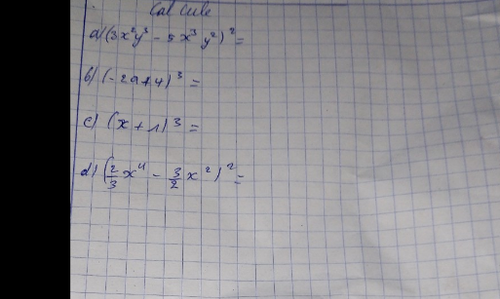 Calcule
a) (3x²y³ - 5x³y²)² =
b) (-2a+4)³ =
c) (x+1)³ =
d) (2/3 x⁴ - 3/2 x²)² =